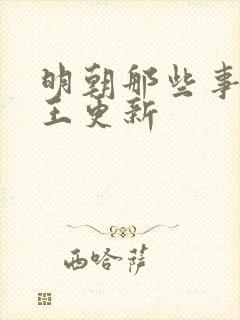 明朝那些事
王更新
西哈萨